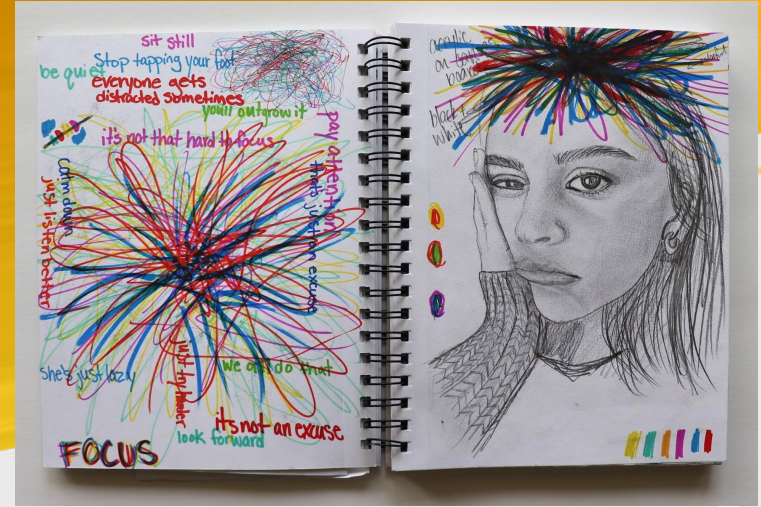 sit still
Stop tapping your foot
be quiet
everyone gets
distracted sometimes
you'll outgrow it
it's not that hard to focus
pay attention
that's just an excuse
calm down
just listen better
she's just lazy
just try harder
we all do that
it's not an excuse
look forward
FOCUS
acrylic
on
board
black +
white